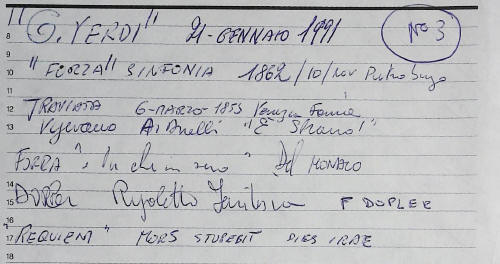 "G. VERDI" 21-GENNAIO 1991 No 3
8
"FORZA" SINFONIA 1862/10/nov Pietroburgo
10
11
TRAVIATA 6-MARZO-1853 Venezia Fenice
12
13 "È Strano!"
FORZA "o tu che in seno" Del MONACO
14
15 DOPLER Rigoletto Fantasia F DOPLER
16
17 "REQUIEM" MORS STUPEBIT DIES IRAE
18